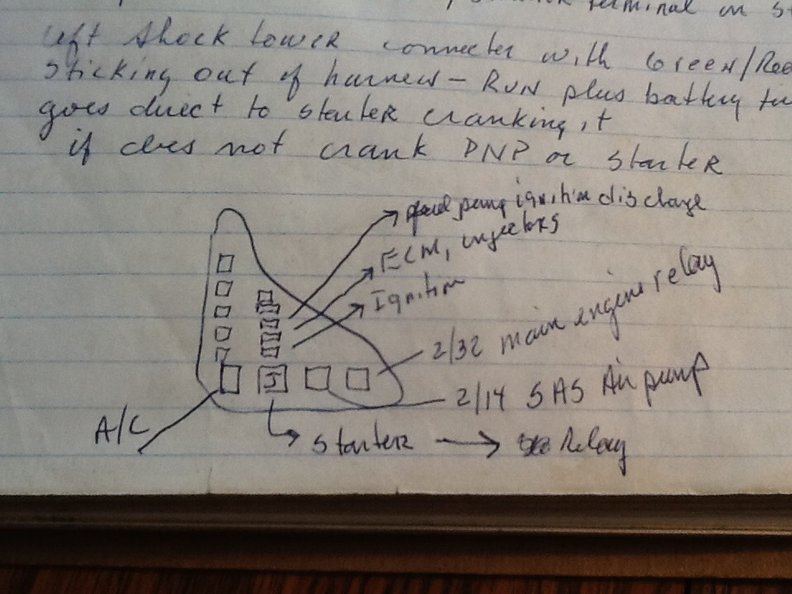 terminal on
left shock tower connecter with Green/Red
sticking out of harness – RUN plus battery
goes direct to starter cranking it
if does not crank PNP or starter
fuel pump ignition discharge
ECM, injectors
Ignition
2/32 main engine relay
2/14 SAS Air pump
A/C
S
starter → Relay